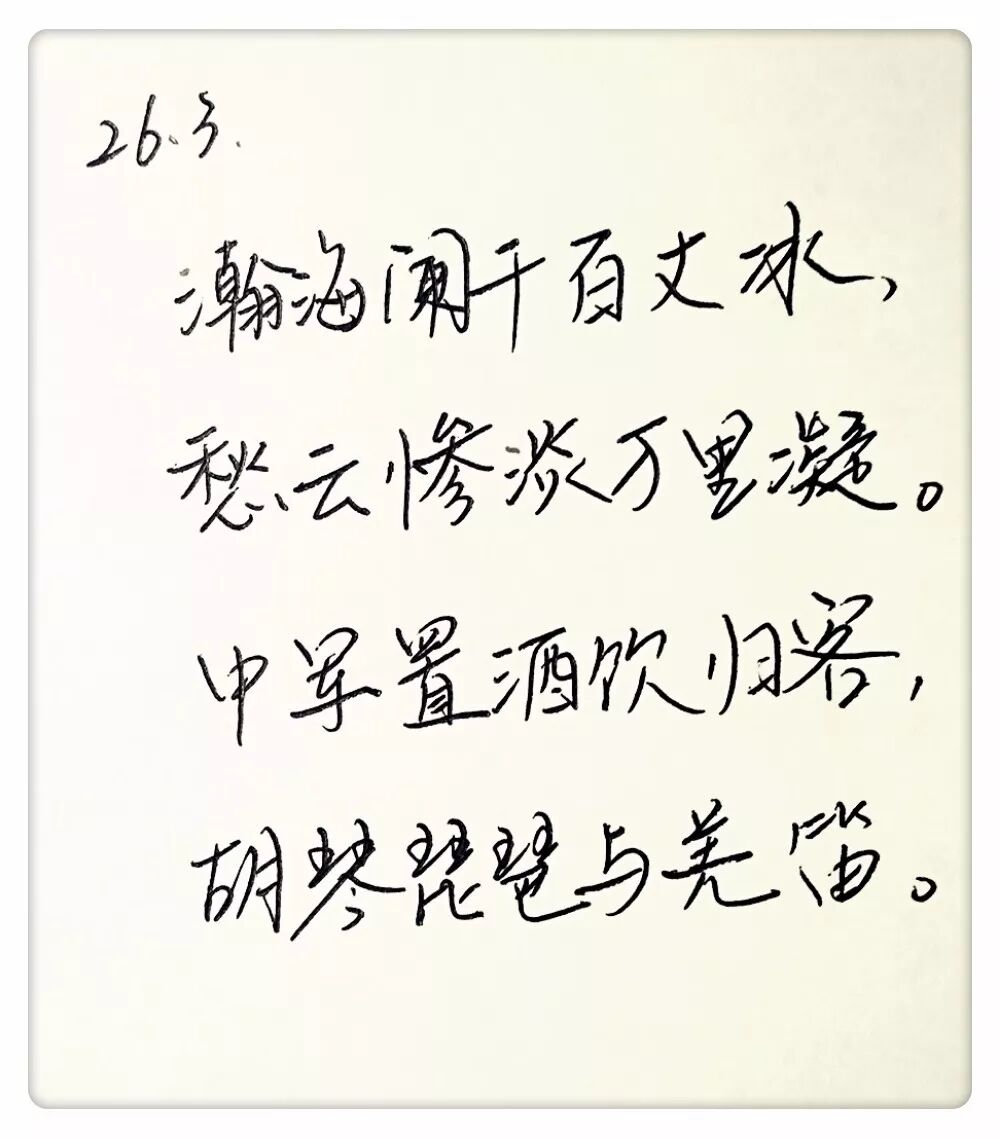 26.3.
瀚海阑干百丈冰，
愁云惨淡万里凝。
中军置酒饮归客，
胡琴琵琶与羌笛。